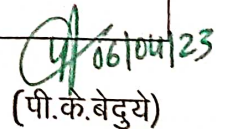 06/04/23
(पी.के.बेदुये)